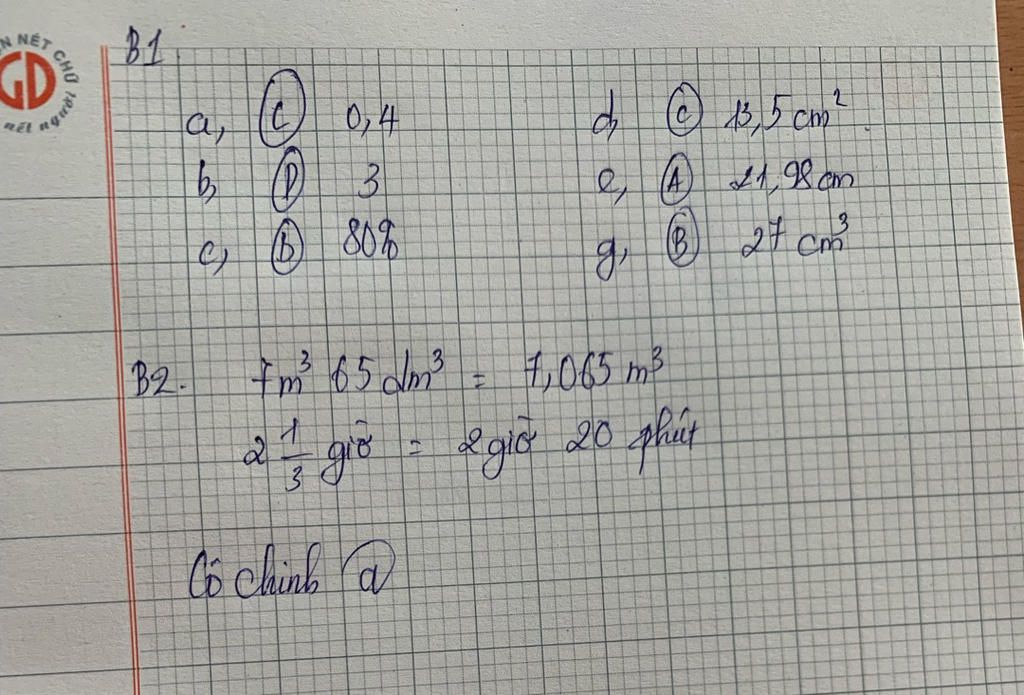 N NÉT CHỮ
GD
nết người
B1
a, C 0,4
b, D 3
c, D 80%
d, C 13,5 cm²
e, A 21,98 cm
g, B 27 cm³
B2. 7m³ 65 dm³ = 7,065 m³
2 1/3 giờ = 2 giờ 20 phút
Cô chinh a